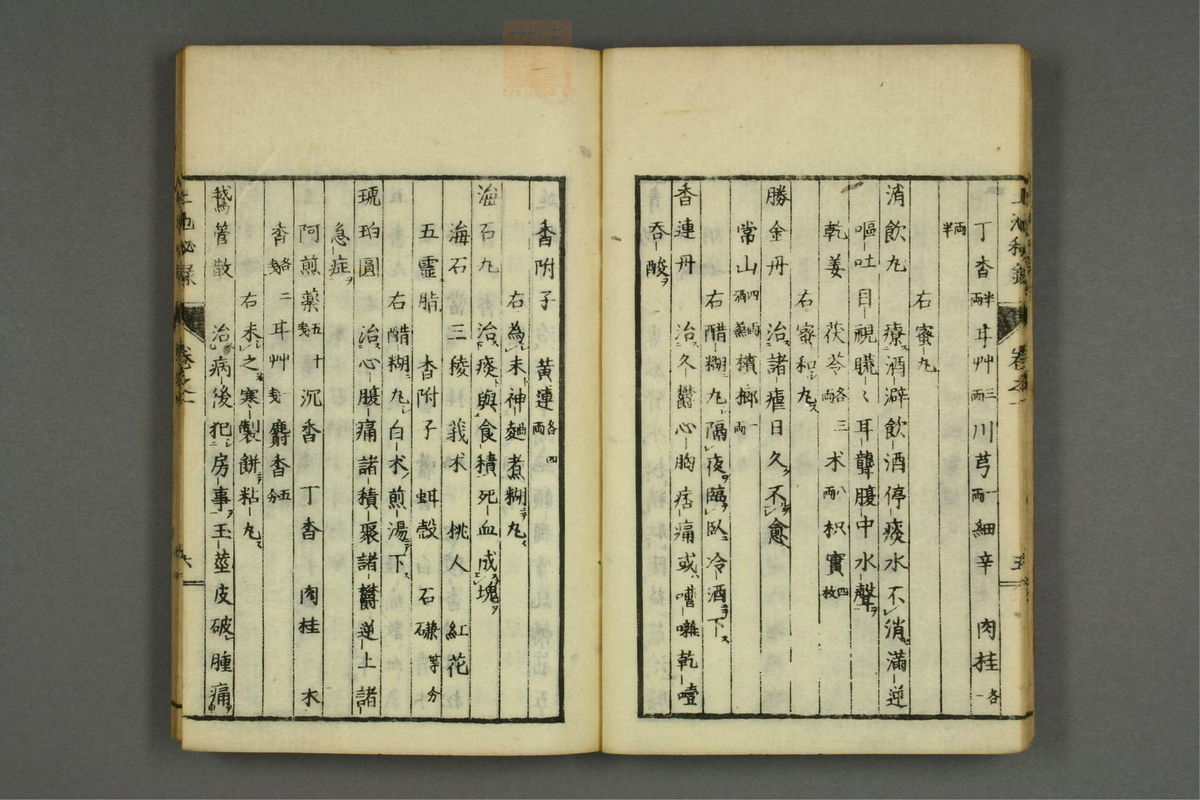 丁香半両甘艸三両川芎一両細辛　肉桂各一
両半
右蜜丸
消飲丸　療酒澼飲酒停痰水不消滿逆
嘔吐目視䀮〻耳聾腹中水聲
乾姜　茯苓各三両　朮八両枳實四枚
右蜜和丸
勝金丹　治諸瘧日久不愈
常山四両酒蒸檳榔一両
右醋糊丸隔夜臨臥冷酒下
香連丹　治久鬱心胸痞痛或嘈囃乾噎
吞酸
香附子　黄連各四両
右為末神麹煮糊丸
海石丸　治痰與食積死血成塊
海石　三稜　莪朮　桃人　紅花
五靈脂　香附子　蚶殻　石磏等分
右醋糊丸白朮煎湯下
琥珀圓　治心腹痛諸積聚諸欝逆上諸
急症
阿煎薬五十戔沉香　丁香　肉桂　木
香各二戔甘艸戔麝香五分
右末之寒製餅粘丸
鵞管散　治病後犯房事玉莖皮破腫痛
上池秘録
卷之
五
六